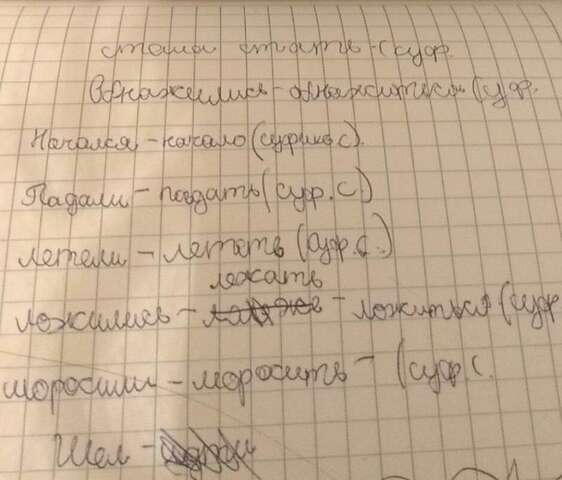 стали стать - (суф.
Обнажились - обнажиться (суф.
Начался - начало (суфикс с).
Падали - падать (суф. с)
летели - летать (суф. с.)
лежать
ложились - - ложиться (суф
моросили - моросить - (суф. с.
Шел -